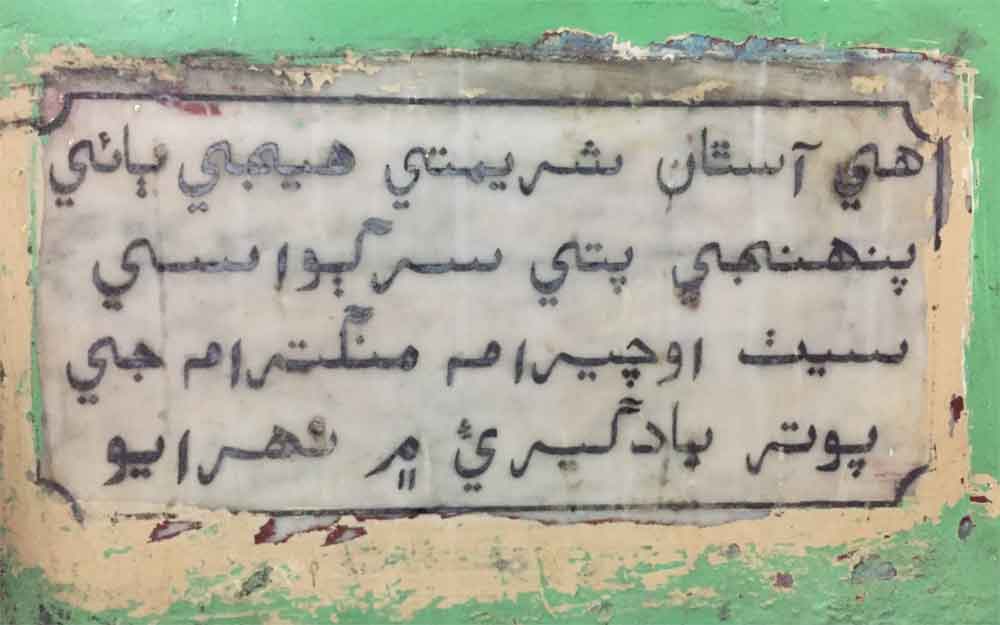 هي آسٿان شريمتي هيمجي ٻائي
پنهنجي پتي سرڳواسي
سيٺ اوچيرام منگترام جي
پوتر يادگيريءَ ۾ ٺهرايو